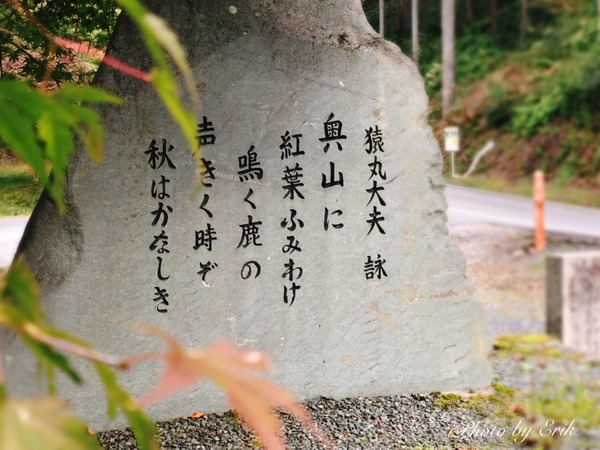 猿丸大夫 詠
奥山に
紅葉ふみわけ
鳴く鹿の
声きく時ぞ
秋はかなしき
iPhoto by Erik